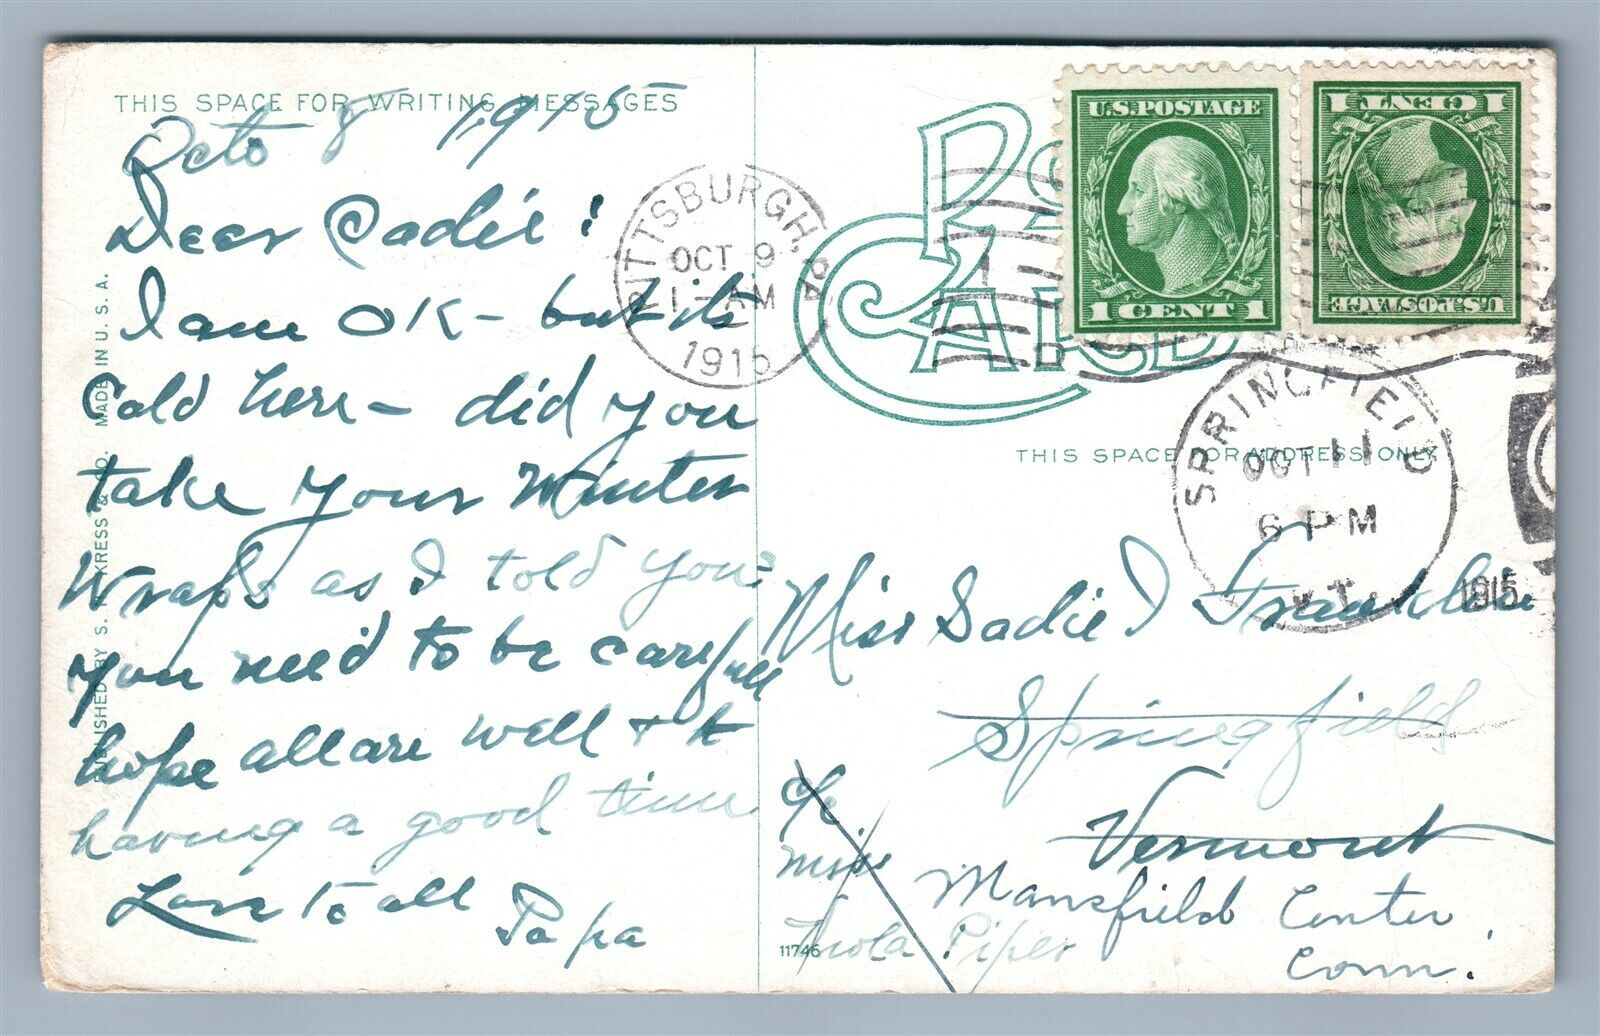 THIS SPACE FOR WRITING MESSAGES
Octo 8 1915
Dear Sadie:
I am OK - but its
Cold here - did you
take your Winter
Wraps as I told you?
you need to be carefull
hope all are well & t
having a good time
Love to all
Papa
PUBLISHED BY S. H. KRESS & CO. MADE IN U.S.A.
PITTSBURGH, PA
OCT 9
1-AM
1915
POST CARD
U.S. POSTAGE
1 CENT 1
U.S. POSTAGE
1 CENT 1
SPRINGFIELD
OCT 11
6 PM
VT.
1915
THIS SPACE FOR ADDRESS ONLY
Miss Sadie I Franklin
Springfield
Vermont
c/o
Miss
Piper
Mansfield Center,
Conn.
11746